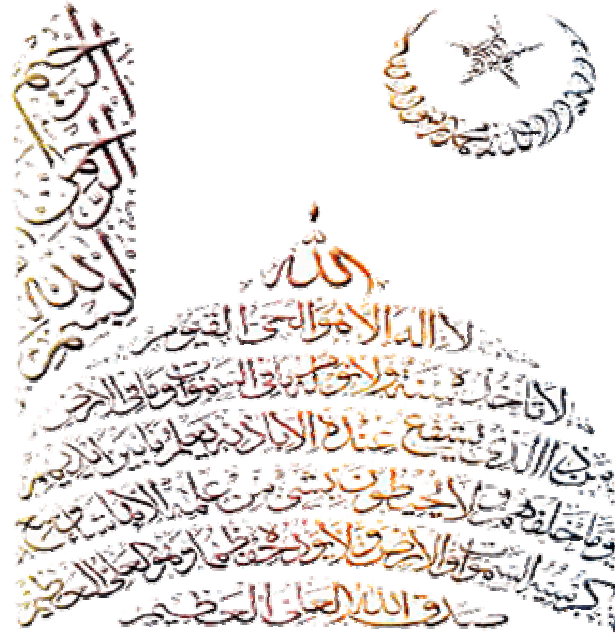 بسم الله الرحمن الرحيم
لا اله الا الله محمد رسول الله
الله
لا اله الا هو الحي القيوم
لا تاخذه سنة ولا نوم له ما في السموات وما في الارض
من ذا الذي يشفع عنده الا باذنه يعلم ما بين ايديهم
وما خلفهم ولا يحيطون بشئ من علمه الا بما شاء وسع
كرسيه السموات والارض ولا يؤده حفظهما وهو العلي العظيم
صدق الله العلي العظيم